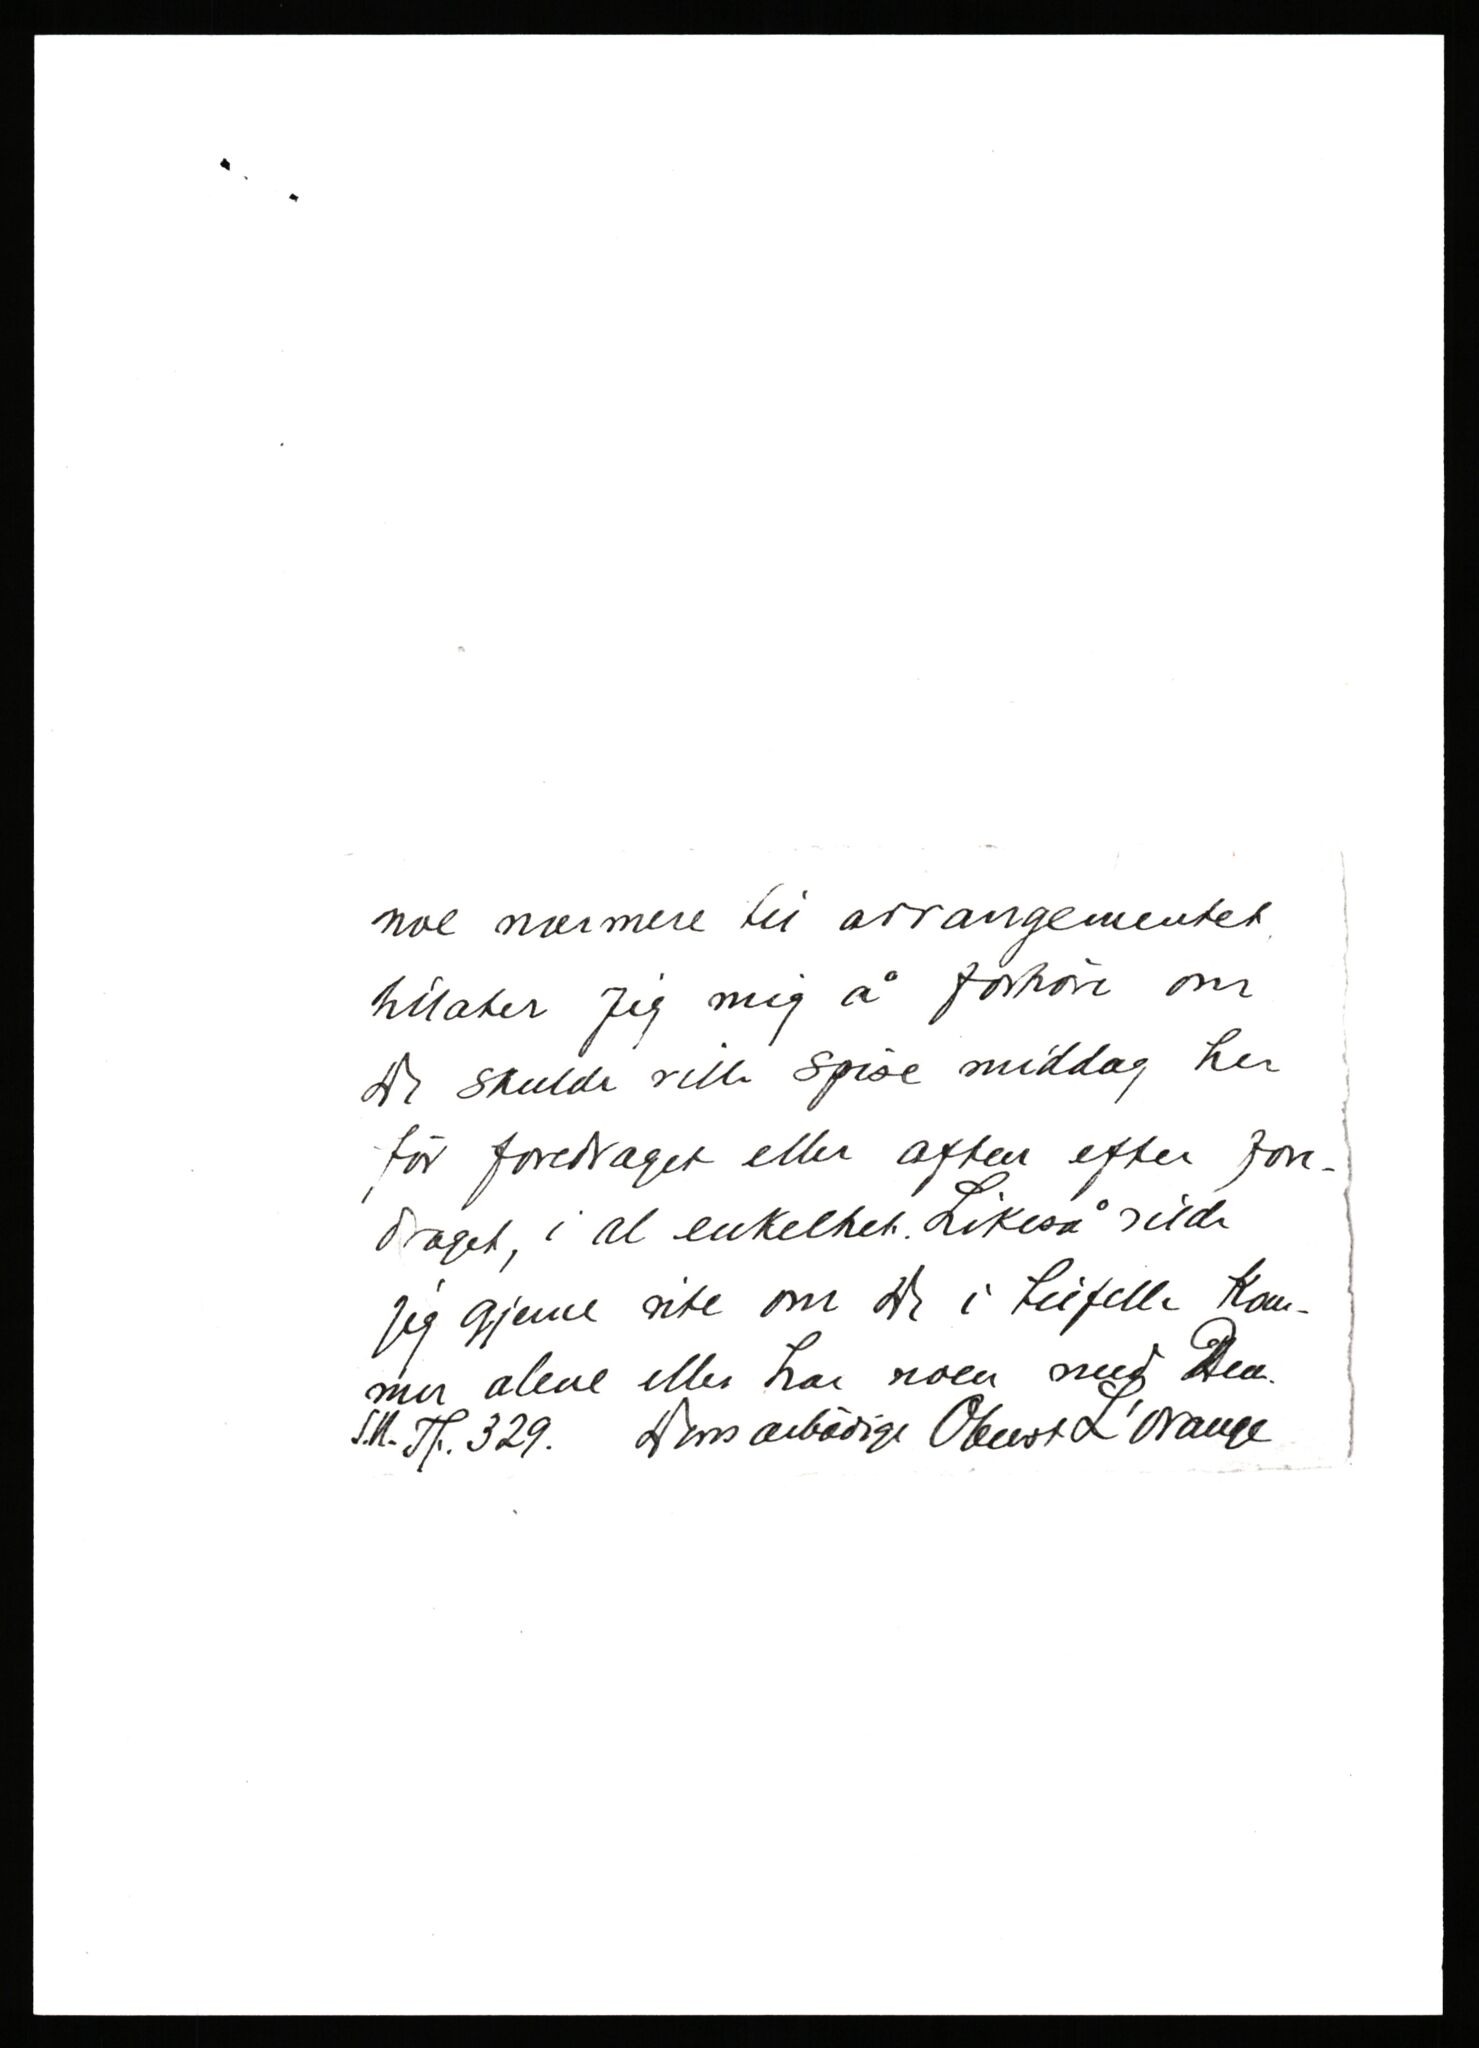 noe nærmere til arrangementet
tillater jeg mig å forhöre om
De skulde ville spise middag her
för foredraget eller aften efter fore-
draget, i al enkelhet. Likeså vilde
jeg gjerne vite om De i tilfelle kom-
mer alene eller har noen med Dem.
Tlf. 329. Deres ærbödige Oberst L'orange